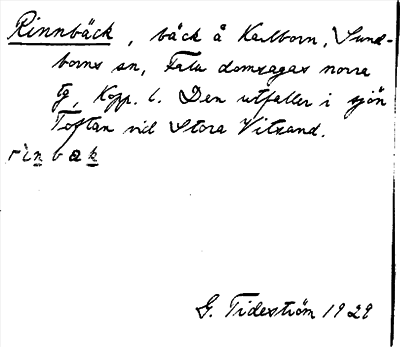 Rinnbäck, bäck å Karlborn, Sund-
borns sn, Falu domsagas norra
tg, Kopp. l. Den utfaller i sjön
Toftan vid Stora Vitsand.
G. Tideström 1929